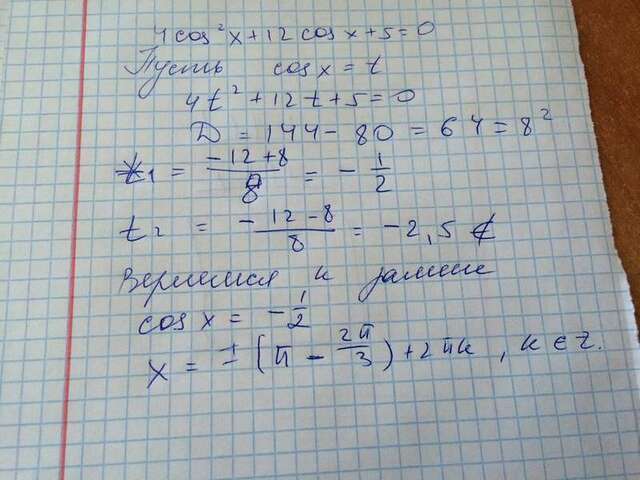 4cos²x+12cosx+5=0
Пусть cosx=t
4t²+12t+5=0
D=144-80=64=8²
t₁ = (-12+8)/8 = -1/2
t₂ = (-12-8)/8 = -2,5 ∉
Вернемся к замене
cosx = -1/2
x = ±(π - 2π/3)+2πk, k∈z.